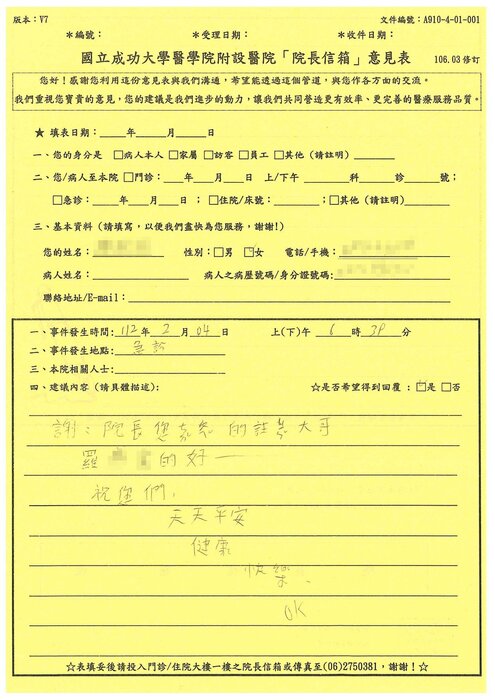 版本：V7 文件編號：A910-4-01-001
*編號： *受理日期： *收件日期：
國立成功大學醫學院附設醫院「院長信箱」意見表 106.03修訂
您好！感謝您利用這份意見表與我們溝通，希望能透過這個管道，與您作各方面的交流。
我們重視您寶貴的意見，您的建議是我們進步的動力，讓我們共同營造更有效率、更完善的醫療服務品質。
★ 填表日期：____年____月____日
一、您的身分是 □病人本人 □家屬 □訪客 □員工 □其他（請註明）
二、您/病人至本院 □門診：____年____月____日 上/下午____科____診____號；
□急診：____年____月____日；□住院/床號：____；□其他（請註明）
三、基本資料（請填寫，以便我們盡快為您服務，謝謝!）
您的姓名： 性別：□男 ☑女 電話/手機：
病人姓名： 病人之病歷號碼/身分證號碼：
聯絡地址/E-mail：
一、事件發生時間：112年2月04日 上(下)午6時39分
二、事件發生地點：急診
三、本院相關人士：
四、建議內容（請具體描述）： ☆是否希望得到回覆：☑是 □否
謝：院長您 的 大哥
羅 的好一
祝您們，
天天平安
健康
快樂、
OK
☆表填妥後請投入門診/住院大樓一樓之院長信箱或傳真至(06)2750381，謝謝！☆